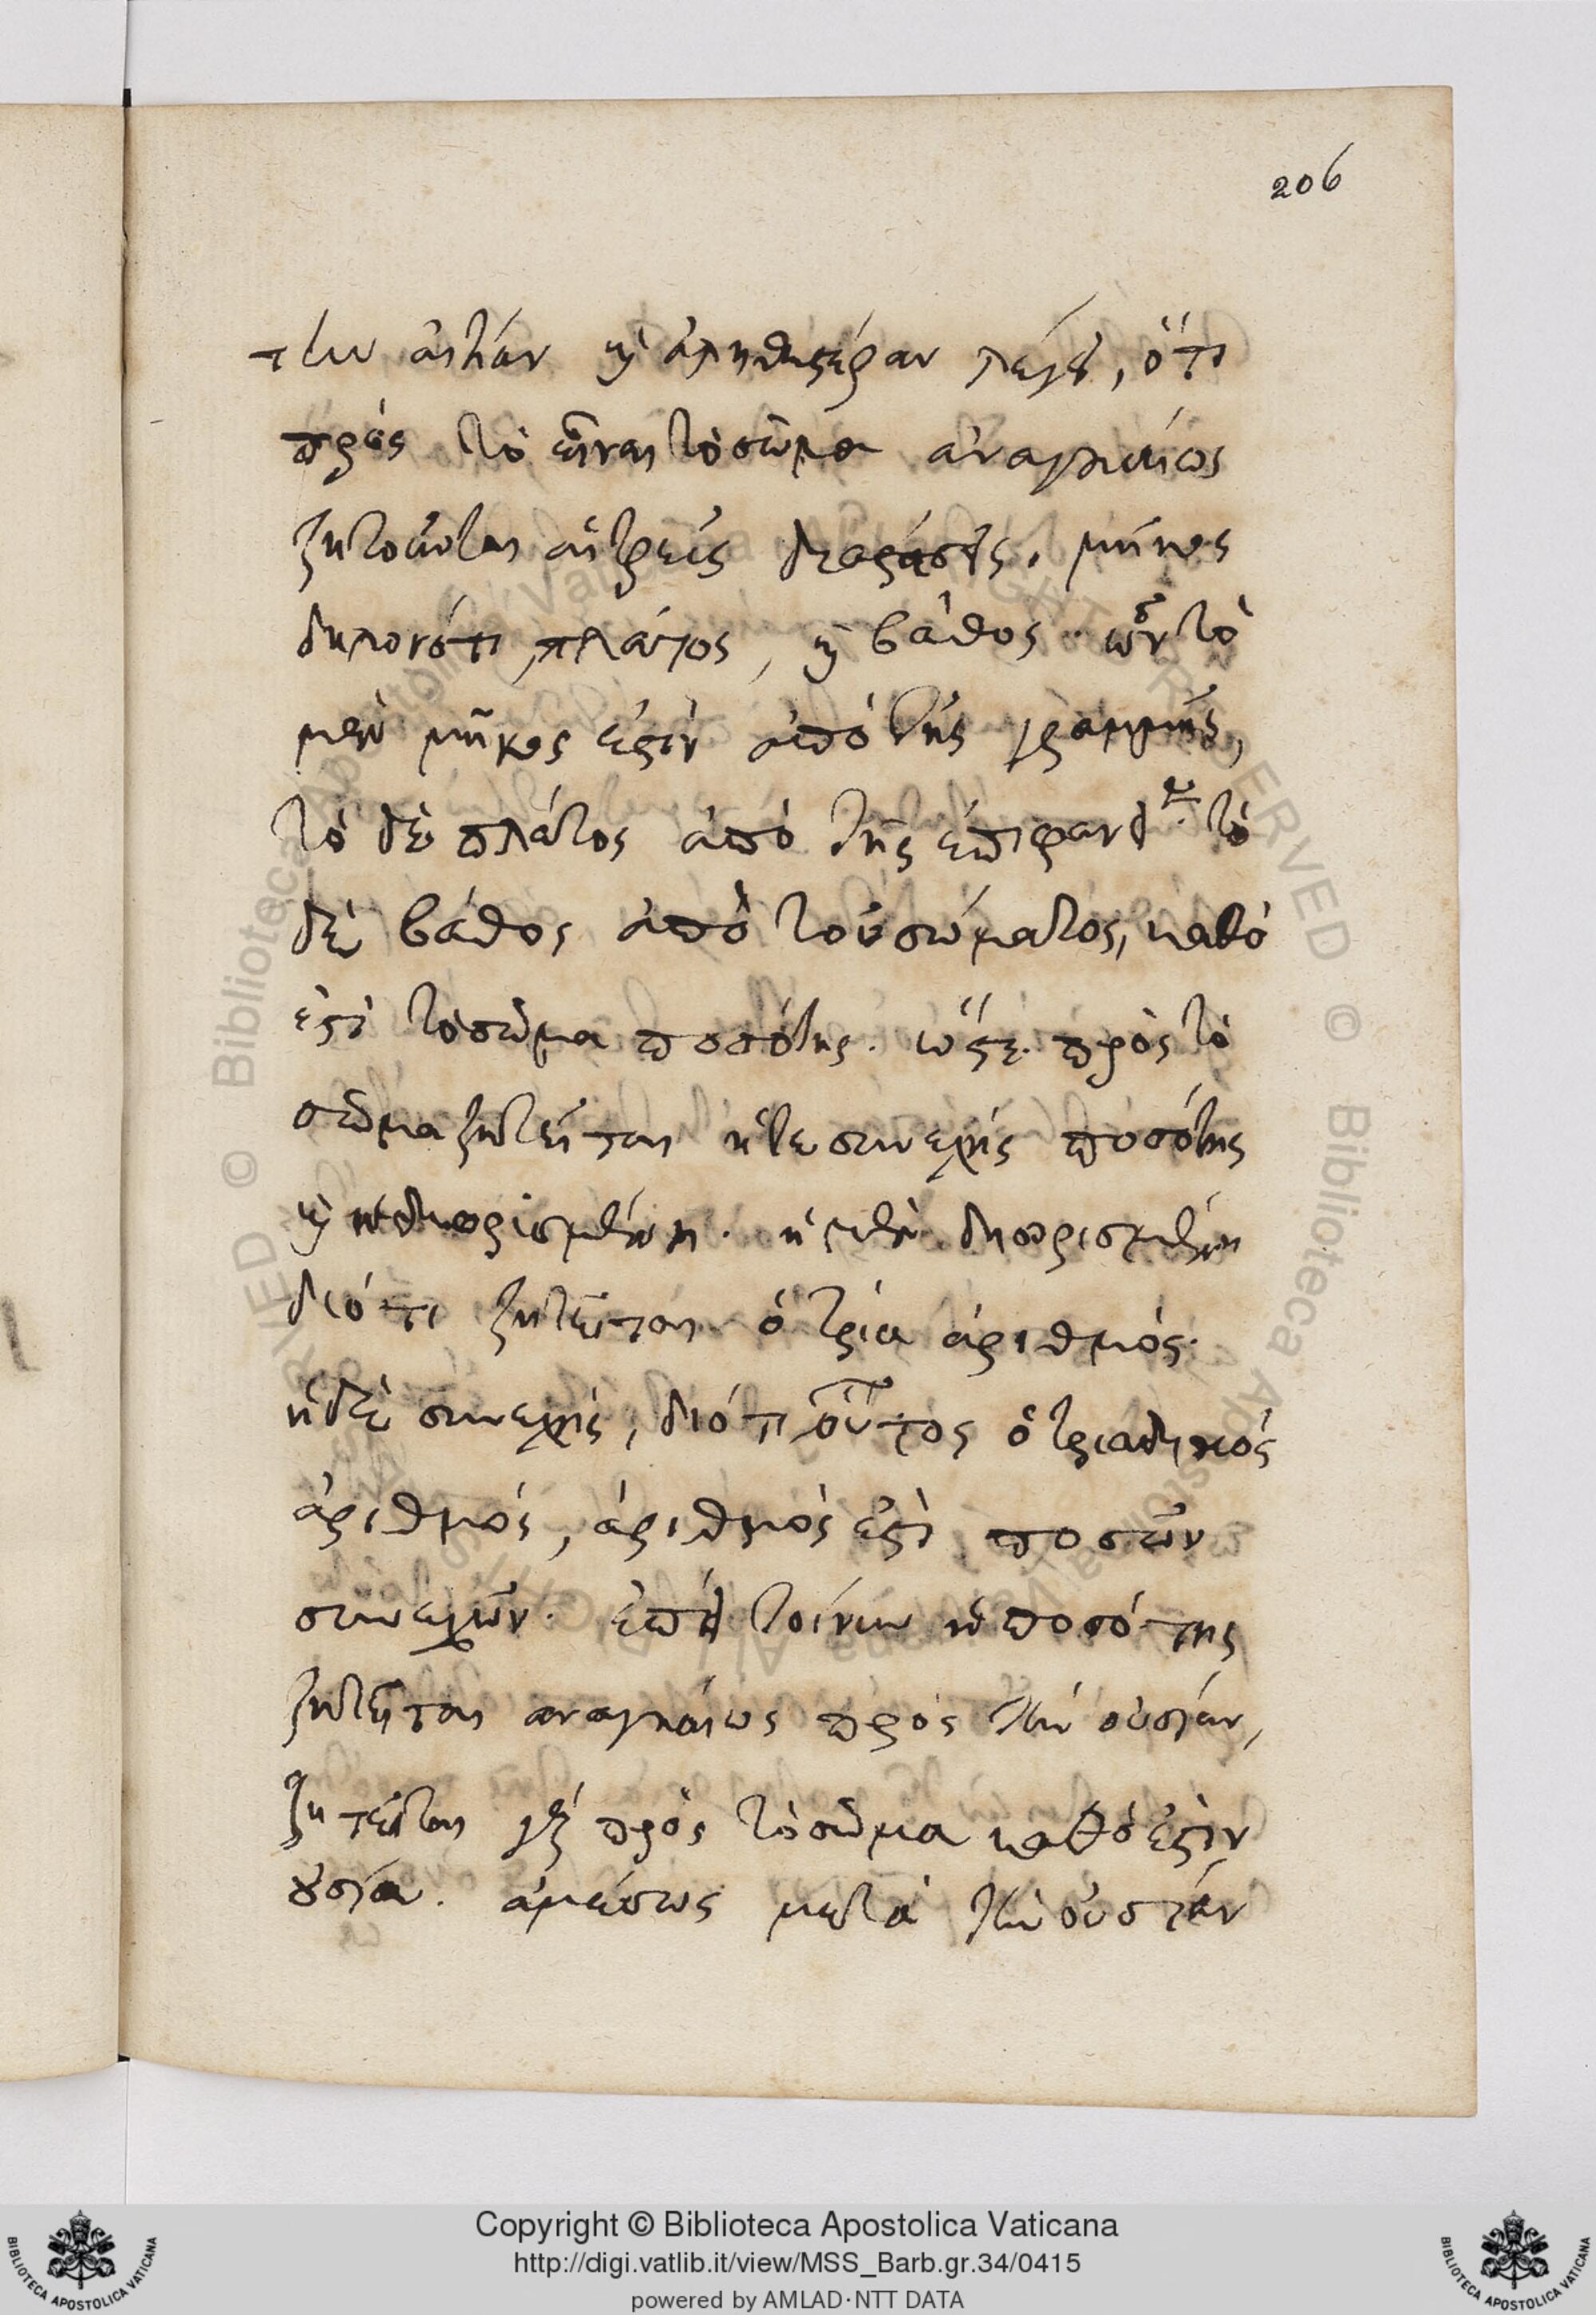 206
τὴν αἰτίαν καὶ ἀληθεστέραν λέγει, ὅτι
πρὸς τὸ εἶναι τὸ σῶμα ἀναγκαίως
ζητοῦνται αἱ τρεῖς διαστάσεις, μῆκος
δηλονότι, πλάτος, καὶ βάθος. ὧν τὸ
μὲν μῆκός ἐστιν ἀπὸ τῆς γραμμῆς,
τὸ δὲ πλάτος ἀπὸ τῆς ἐπιφανείας. τὸ
δὲ βάθος ἀπὸ τοῦ σώματος, καθὸ
ἐστὶ τὸ σῶμα ποσότης. ὥστε πρὸς τὸ
σῶμα ζητεῖται ἥτε συνεχὴς ποσότης
καὶ ἡ διωρισμένη. ἡ μὲν διωρισμένη
διότι ζητεῖται ὁ τρία ἀριθμός.
ἡ δὲ συνεχὴς, διότι οὗτος ὁ τριαδικὸς
ἀριθμός, ἀριθμὸς ἐστὶ ποσῶν
συνεχῶν. ἐπεὶ τοίνυν ἡ ποσότης
ζητεῖται ἀναγκαίως πρὸς τὴν οὐσίαν,
ζητεῖται γὰρ πρὸς τὸ σῶμα καθὸ ἐστὶν
οὐσία. ἀμέσως μετὰ τὴν οὐσίαν
Copyright © Biblioteca Apostolica Vaticana
http://digi.vatlib.it/view/MSS_Barb.gr.34/0415
powered by AMLAD·NTT DATA